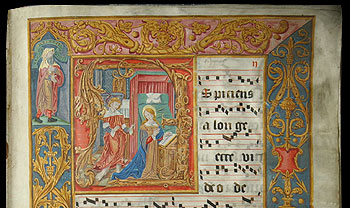 Spiciens
a longe
ecce vi
deo de